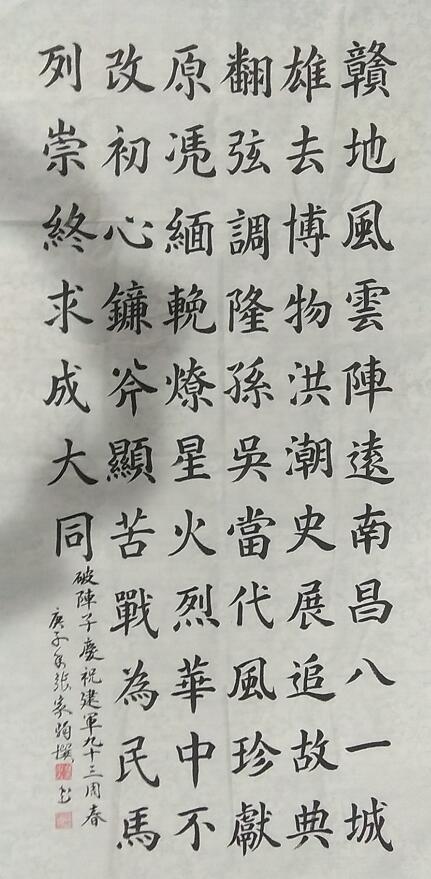 贛地風雲陣遠南昌八一城
雄去博物洪潮史展追故典
翻弦調隆孫吳當代風珍獻
原凴緬輓燎星火烈華中不
改初心鐮斧顯苦戰為民馬
列崇終求成大同
破陣子慶祝建軍九十三周春
庚子張家撰书